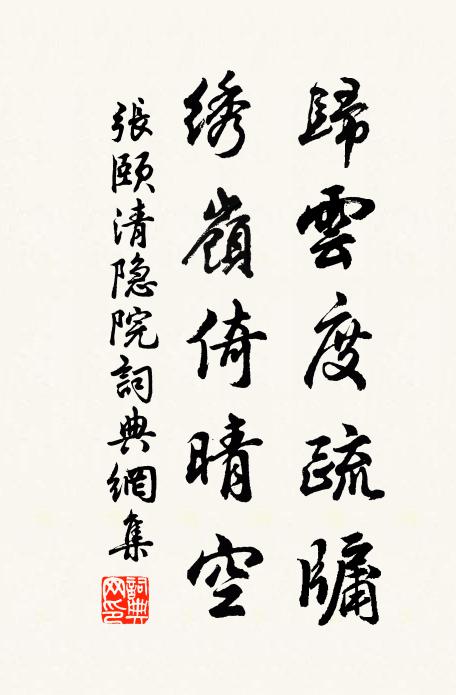 歸雲度疏牖
綉嶺倚晴空
張頤清隐院詞典網集
詞典网印